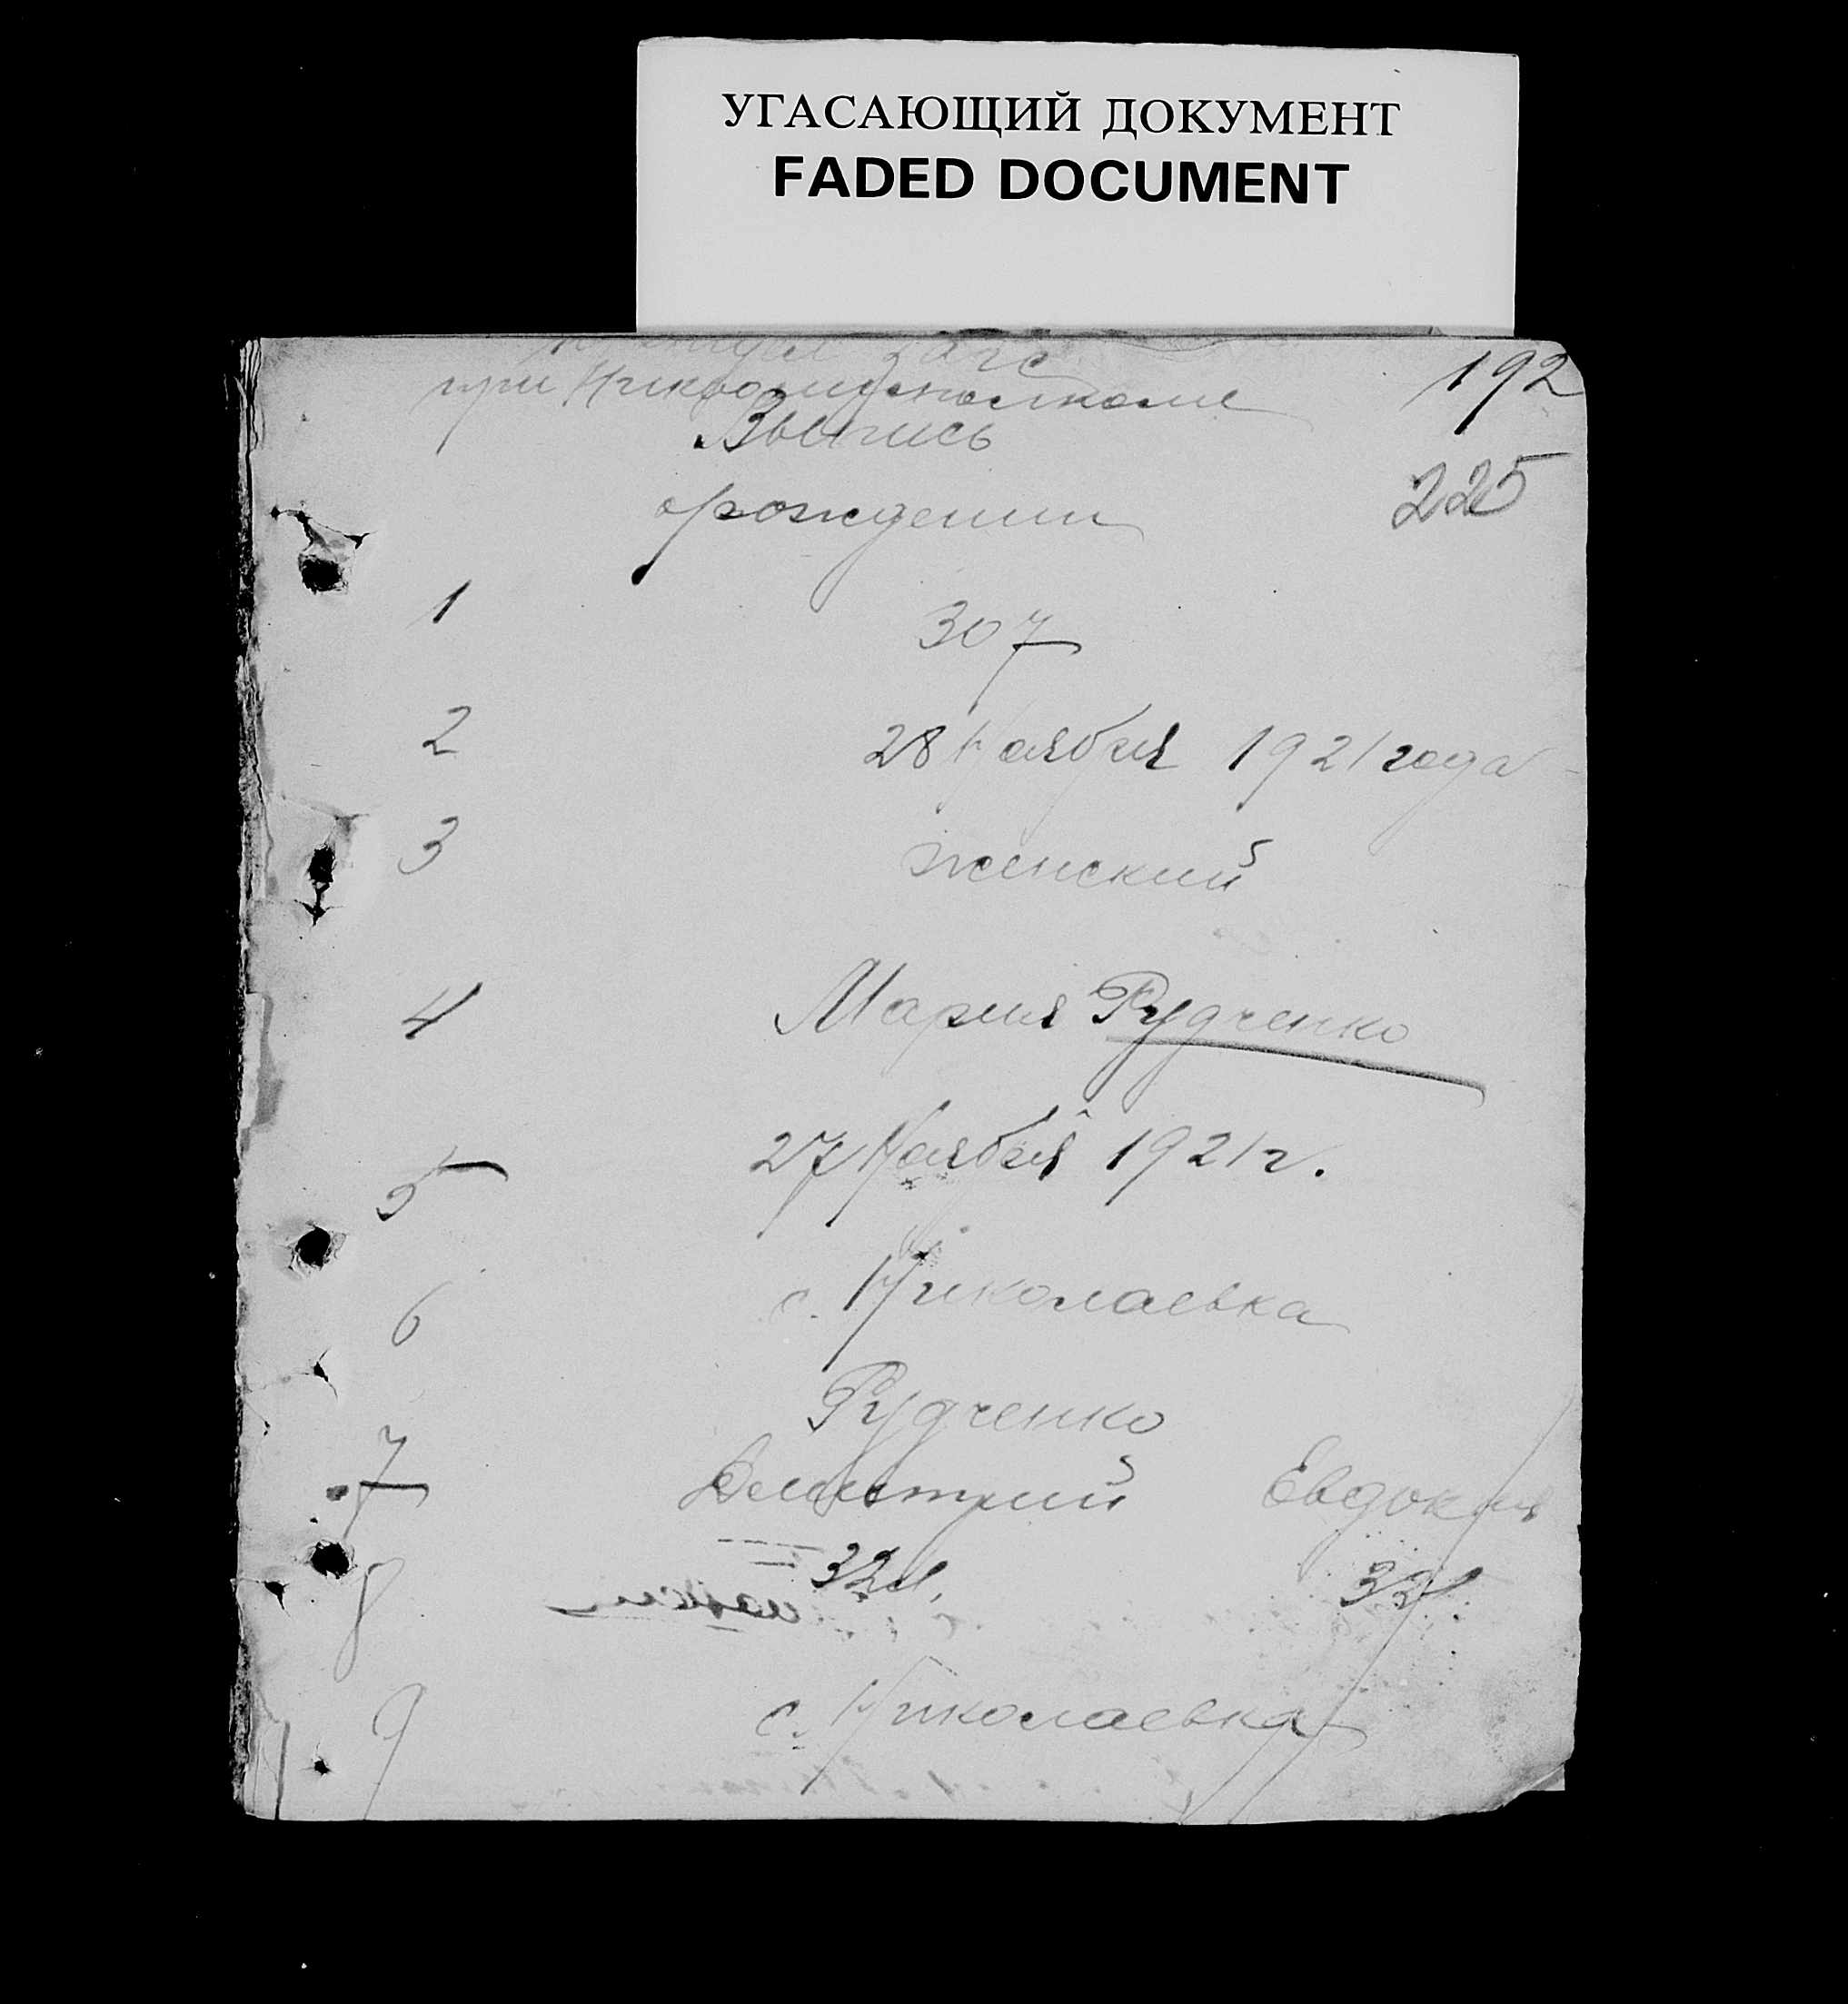 УГАСАЮЩИЙ ДОКУМЕНТ
FADED DOCUMENT
загс 192
при
Выпись
о рождении 225
1 307
2 28 Ноября 1921 года
3 Женский
4 Мария Рудченко
5 27 Ноября 1921 г.
6 с. Николаевка
Рудченко
7 Дмитрий Евдокия
8 32 л. 32 л.
9 с. Николаевка